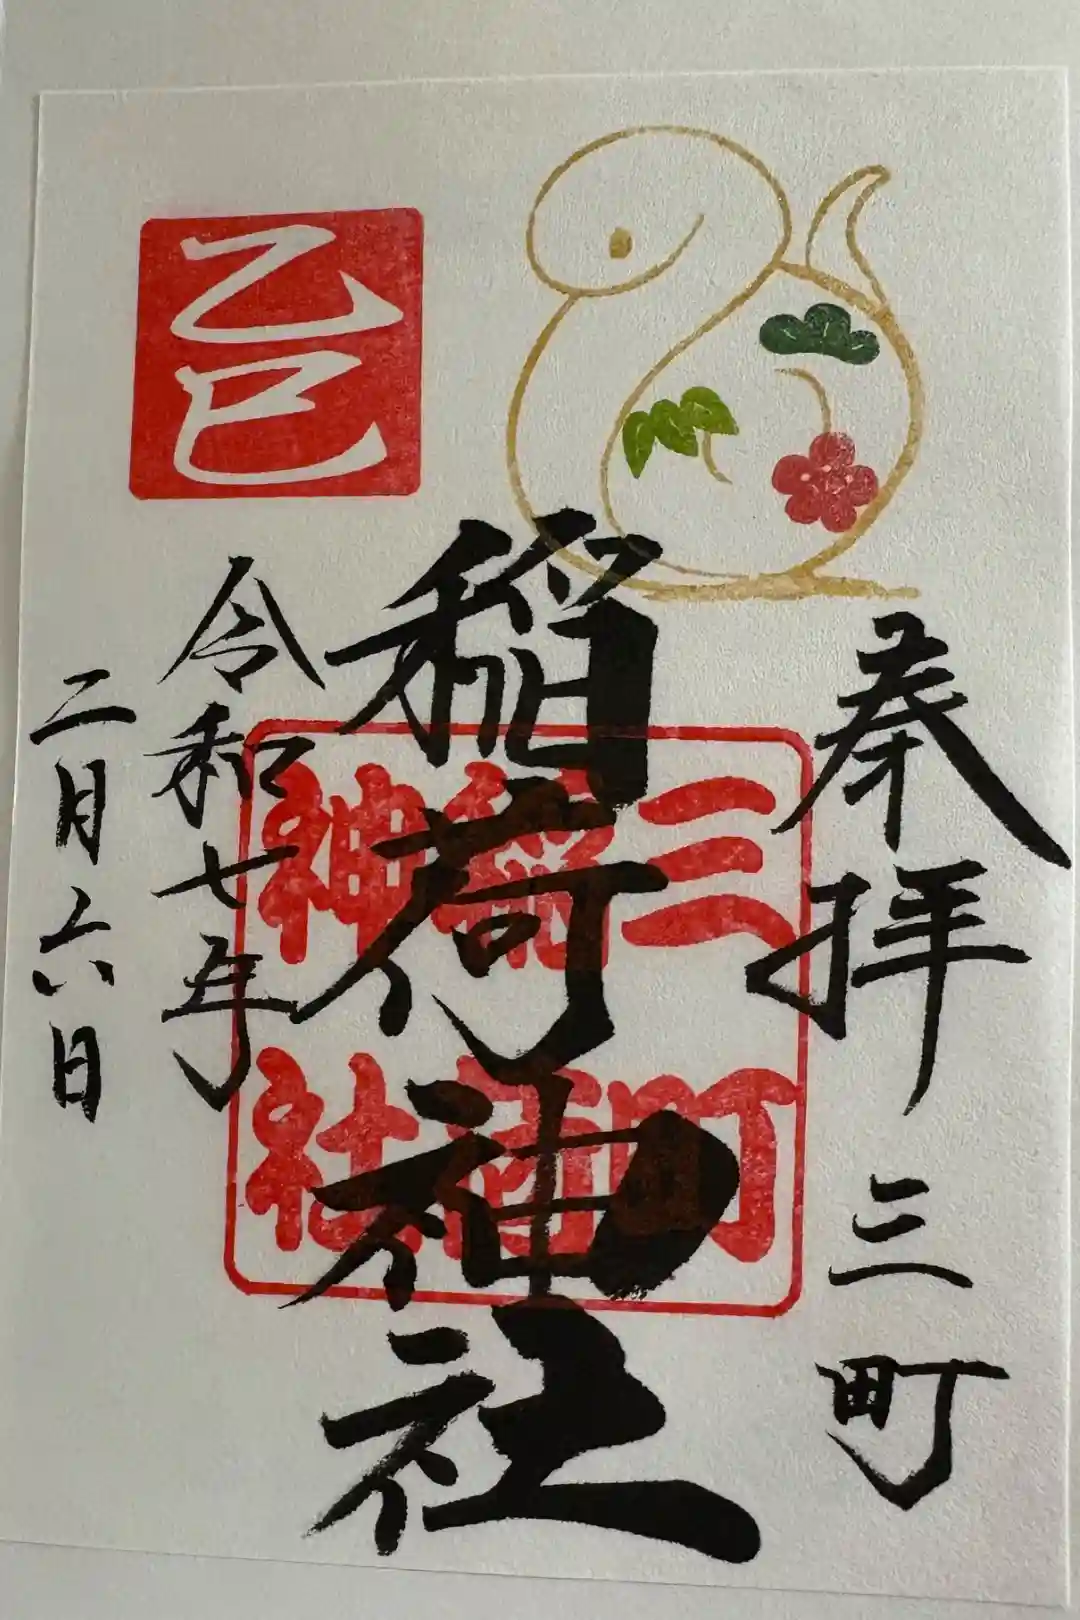 奉拝 三町
稲荷神社
令和七年
二月六日
乙巳
三町
稲荷
神社